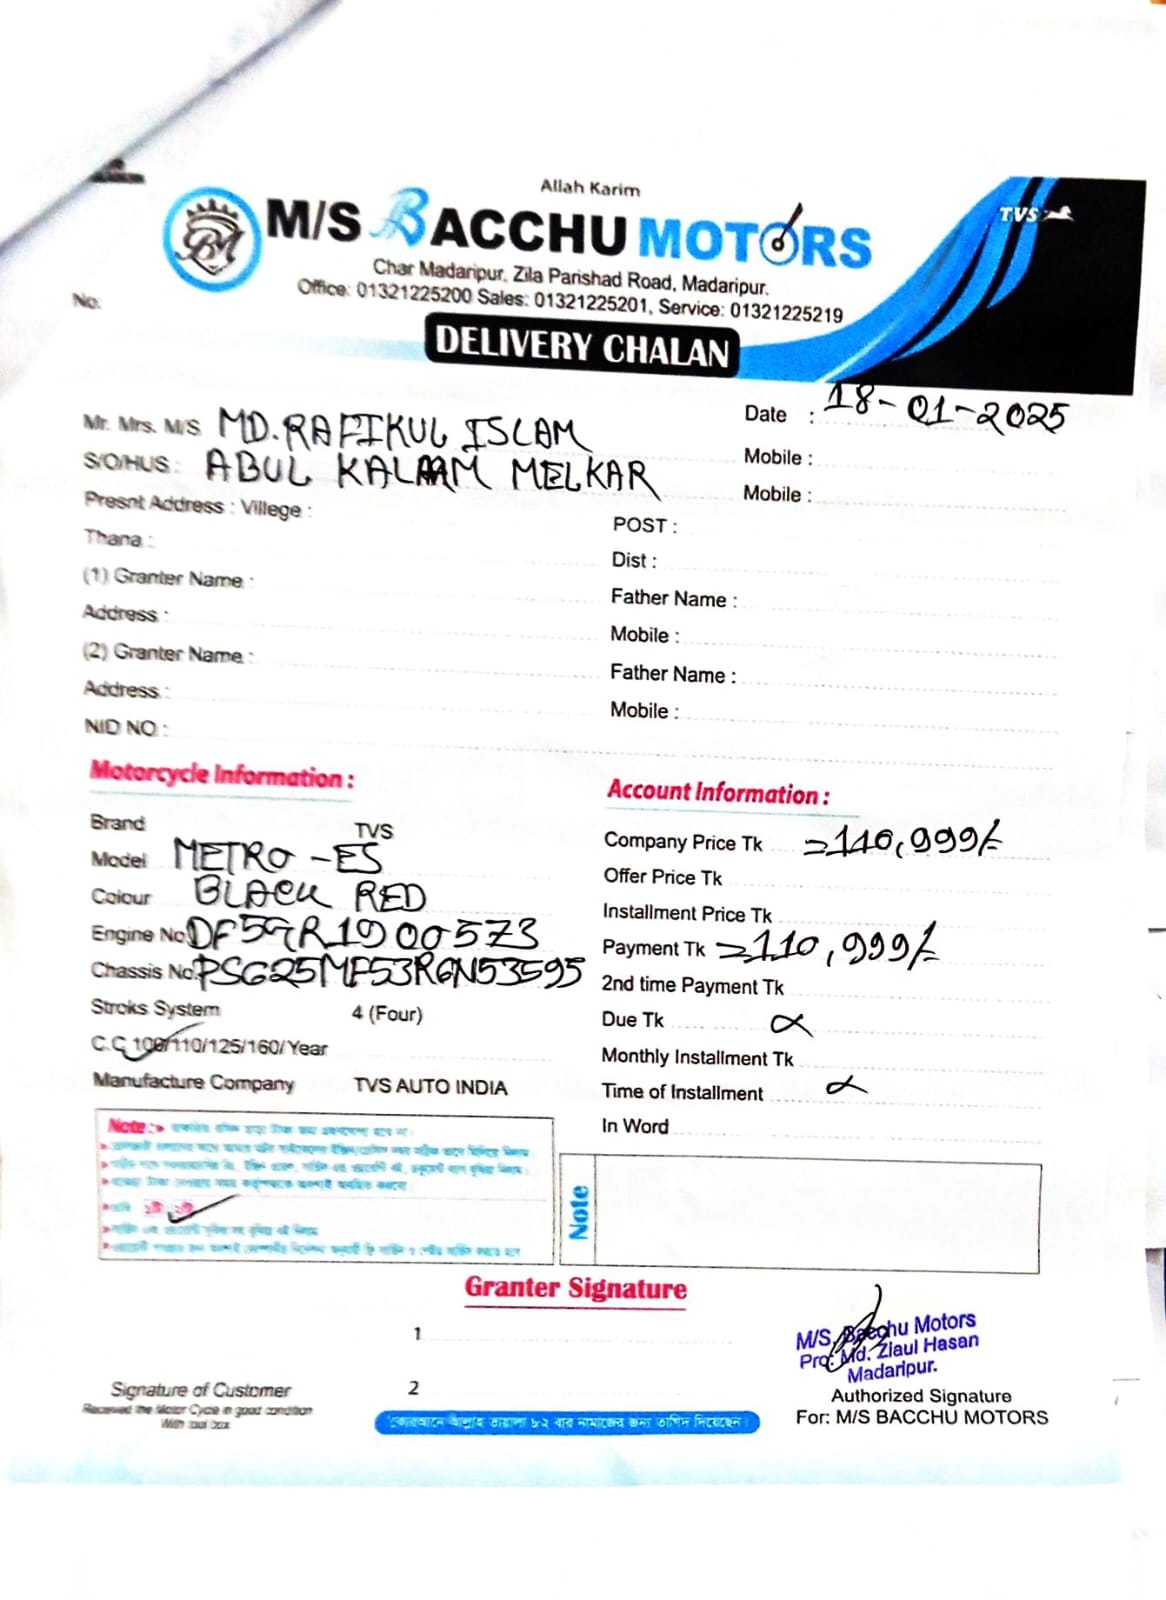 Allah Karim
M/S BACCHU MOTORS
TVS
Char Madaripur, Zila Parishad Road, Madaripur.
Office: 01321225200 Sales: 01321225201, Service: 01321225219
No.
DELIVERY CHALAN
Mr. Mrs. M/S MD. RAFIKUL ISLAM
Date : 18-01-2025
S/O/HUS : ABUL KALAM MELKAR
Mobile :
Mobile :
Presnt Address : Villege :
POST :
Thana :
Dist :
(1) Granter Name :
Father Name :
Address :
Mobile :
(2) Granter Name :
Father Name :
Address :
Mobile :
NID NO :
Motorcycle Information :
Account Information :
Brand TVS
Company Price Tk =110,999/-
Model METRO-ES
Offer Price Tk
Colour BLACK RED
Installment Price Tk
Engine No DF5GR1900573
Payment Tk =110,999/-
Chassis No. PSG25MF53R6N53595
2nd time Payment Tk
Stroks System 4 (Four)
Due Tk
C.C 100/110/125/160/Year
Monthly Installment Tk
Manufacture Company TVS AUTO INDIA
Time of Installment
In Word
Note :
Note
Granter Signature
1
2
M/S. Bacchu Motors
Pro: Md. Ziaul Hasan
Madaripur.
Signature of Customer
Received the Motor Cycle in good condition
With tool box
Authorized Signature
For: M/S BACCHU MOTORS
কোরআনে আল্লাহ তায়ালা ৮২ বার নামাজের জন্য তাগিদ দিয়েছেন